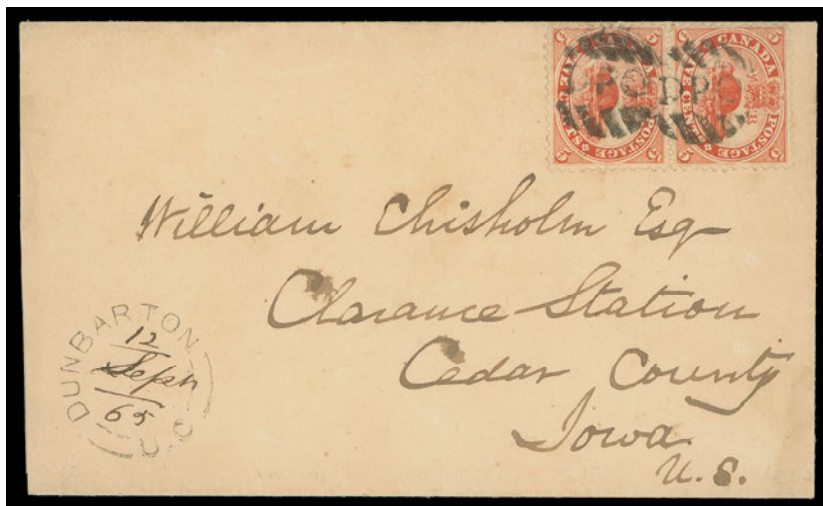 CANADA POSTAGE FIVE CENTS 5 5 5 5
CANADA POSTAGE FIVE CENTS 5 5 5 5
William Chisholm Esq
Clarance Station
Cedar County
Iowa
U.S.
DUNBARTON
12
Sept
65